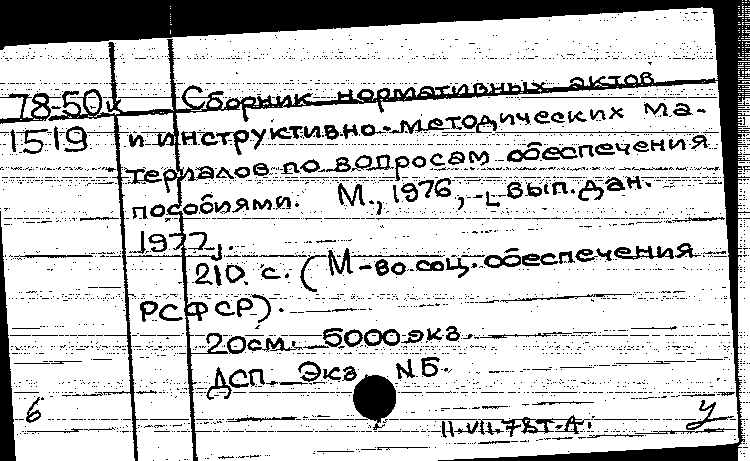 78-50к Сборник нормативных актов
1519 и инструктивно-методических ма-
териалов по вопросам обеспечения
пособиями. М., 1976, [вып. дан.
1977].
210 с. (М-во соц. обеспечения
РСФСР).
20см. 5000 экз.
ДСП. Экз. №Б.
6 11.VII.78Т-А. У